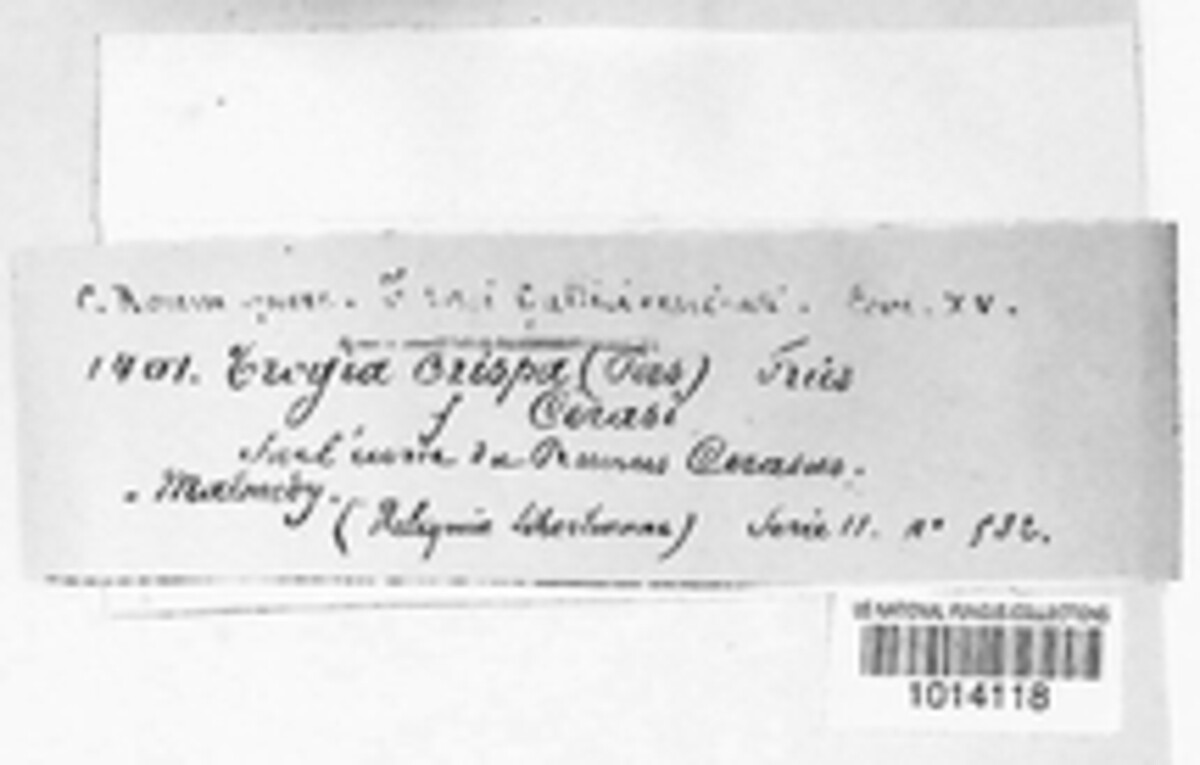 C. Roumeguere. Fungi Gallici exsiccati. Cent. XV.
1401. Trogia crispa (Pers) Fries
f Cerasi
Sur l'écorce du Prunus Cerasus.
Malmedy.
(Reliquiæ Libertianæ) Serie II. no 532.
US NATIONAL FUNGUS COLLECTIONS
1014118